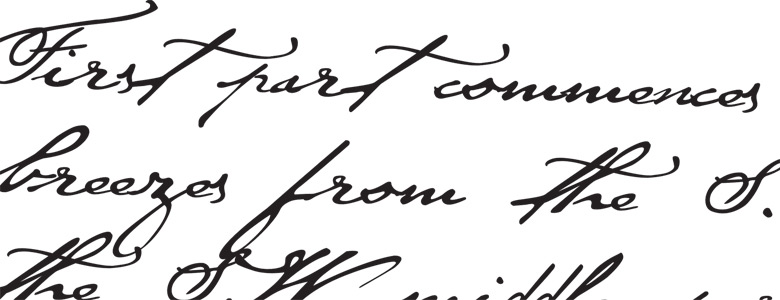 First part commences
breezes from the S.
the S.W. middle